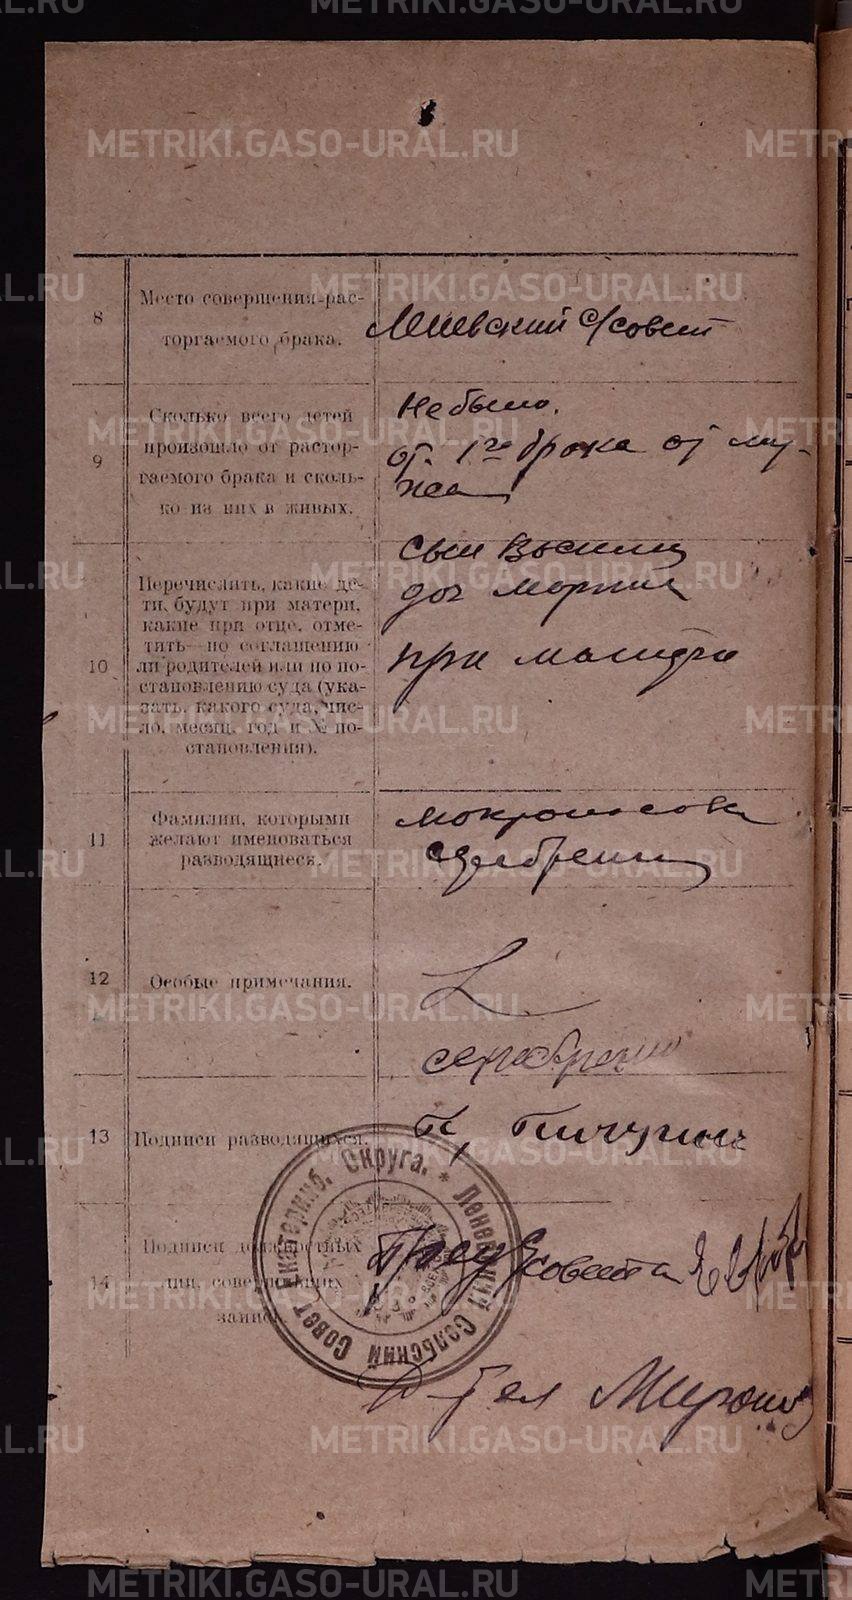 METRIKI.GASO-URAL.RU
8
Место совершения рас-
торгаемого брака.
с/совет
9
Сколько всего детей
произошло от растор-
гаемого брака и сколь-
ко из них в живых.
Не было.
от 1го брака от му-
жа
10
Перечислить, какие де-
ти будут при матери,
какие при отце, отме-
тить—по соглашению
ли родителей или по по-
становлению суда (ука-
зать, какого суда, чис-
ло, месяц, год и № по-
становления).
сын Василий
доч Мария
при матере
11
Фамилии, которыми
желают именоваться
разводящиеся.
Мокроносова
12
Особые примечания.
13
Подписи разводящихся.
14
Подписи должностных
лиц, совершивших
запись.
Пред с/совета
Екатеринб. Округа.
Сельский Совет